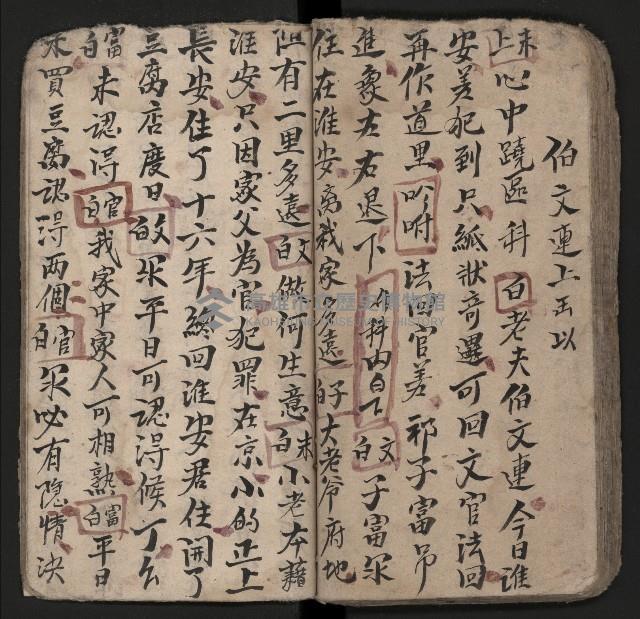 伯文連上玉以
末上心中蹺區科白老夫伯文連今日淮
安差犯到只紙狀奇選可回文官法回
再作道里吩咐法回官差祁子富吊
進象左右退下科内白下文白子富氷
住在淮安離我家多遠白子大老爷府地
但有二里多遠白文做何生意末白小老本籍
淮安只因家父為官犯罪在京小的正上
長安住了十六年終回淮安居住開了
豆腐店度日白文氷平日可認得候丁么
富白末認得白官我家中家人可相熟白富平日
來買豆腐認得两個白官氷必有隐情決
高雄市立歷史博物館
KAOHSIUNG MUSEUM OF HISTORY